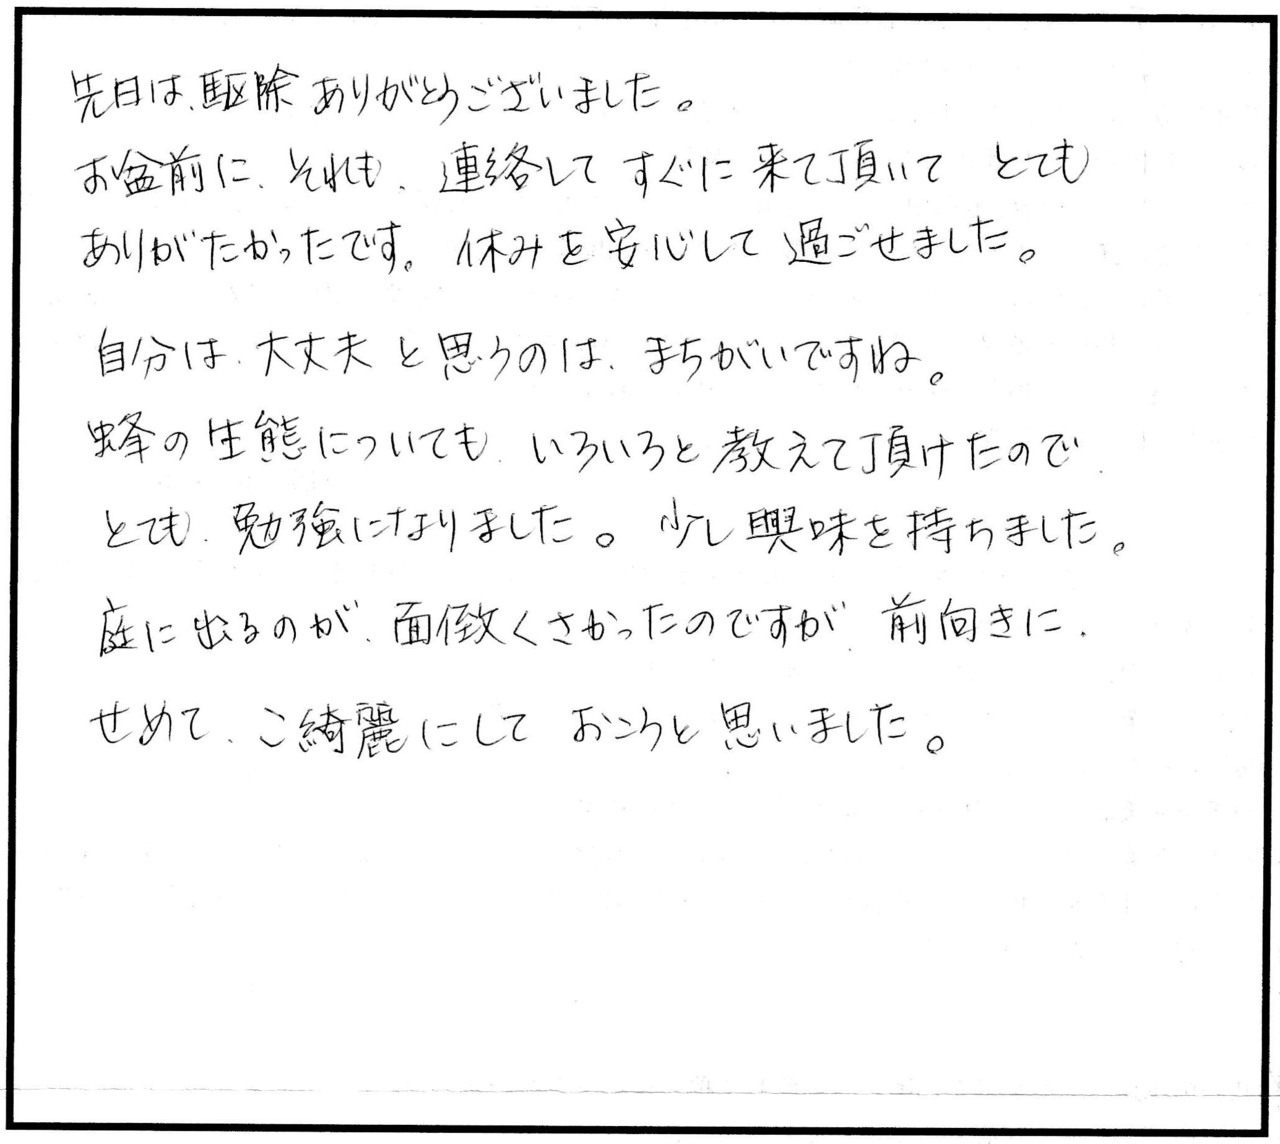 先日は、駆除ありがとうございました。
お盆前に、それも、連絡して すぐに来て頂いて とても
ありがたかったです。休みを安心して過ごせました。
自分は、大丈夫と思うのは、まちがいですね。
蜂の生態についても、いろいろと教えて頂けたので、
とても、勉強になりました。少し興味を持ちました。
庭に出るのが、面倒くさかったのですが、前向きに、
せめて、こ綺麗にして おこうと思いました。